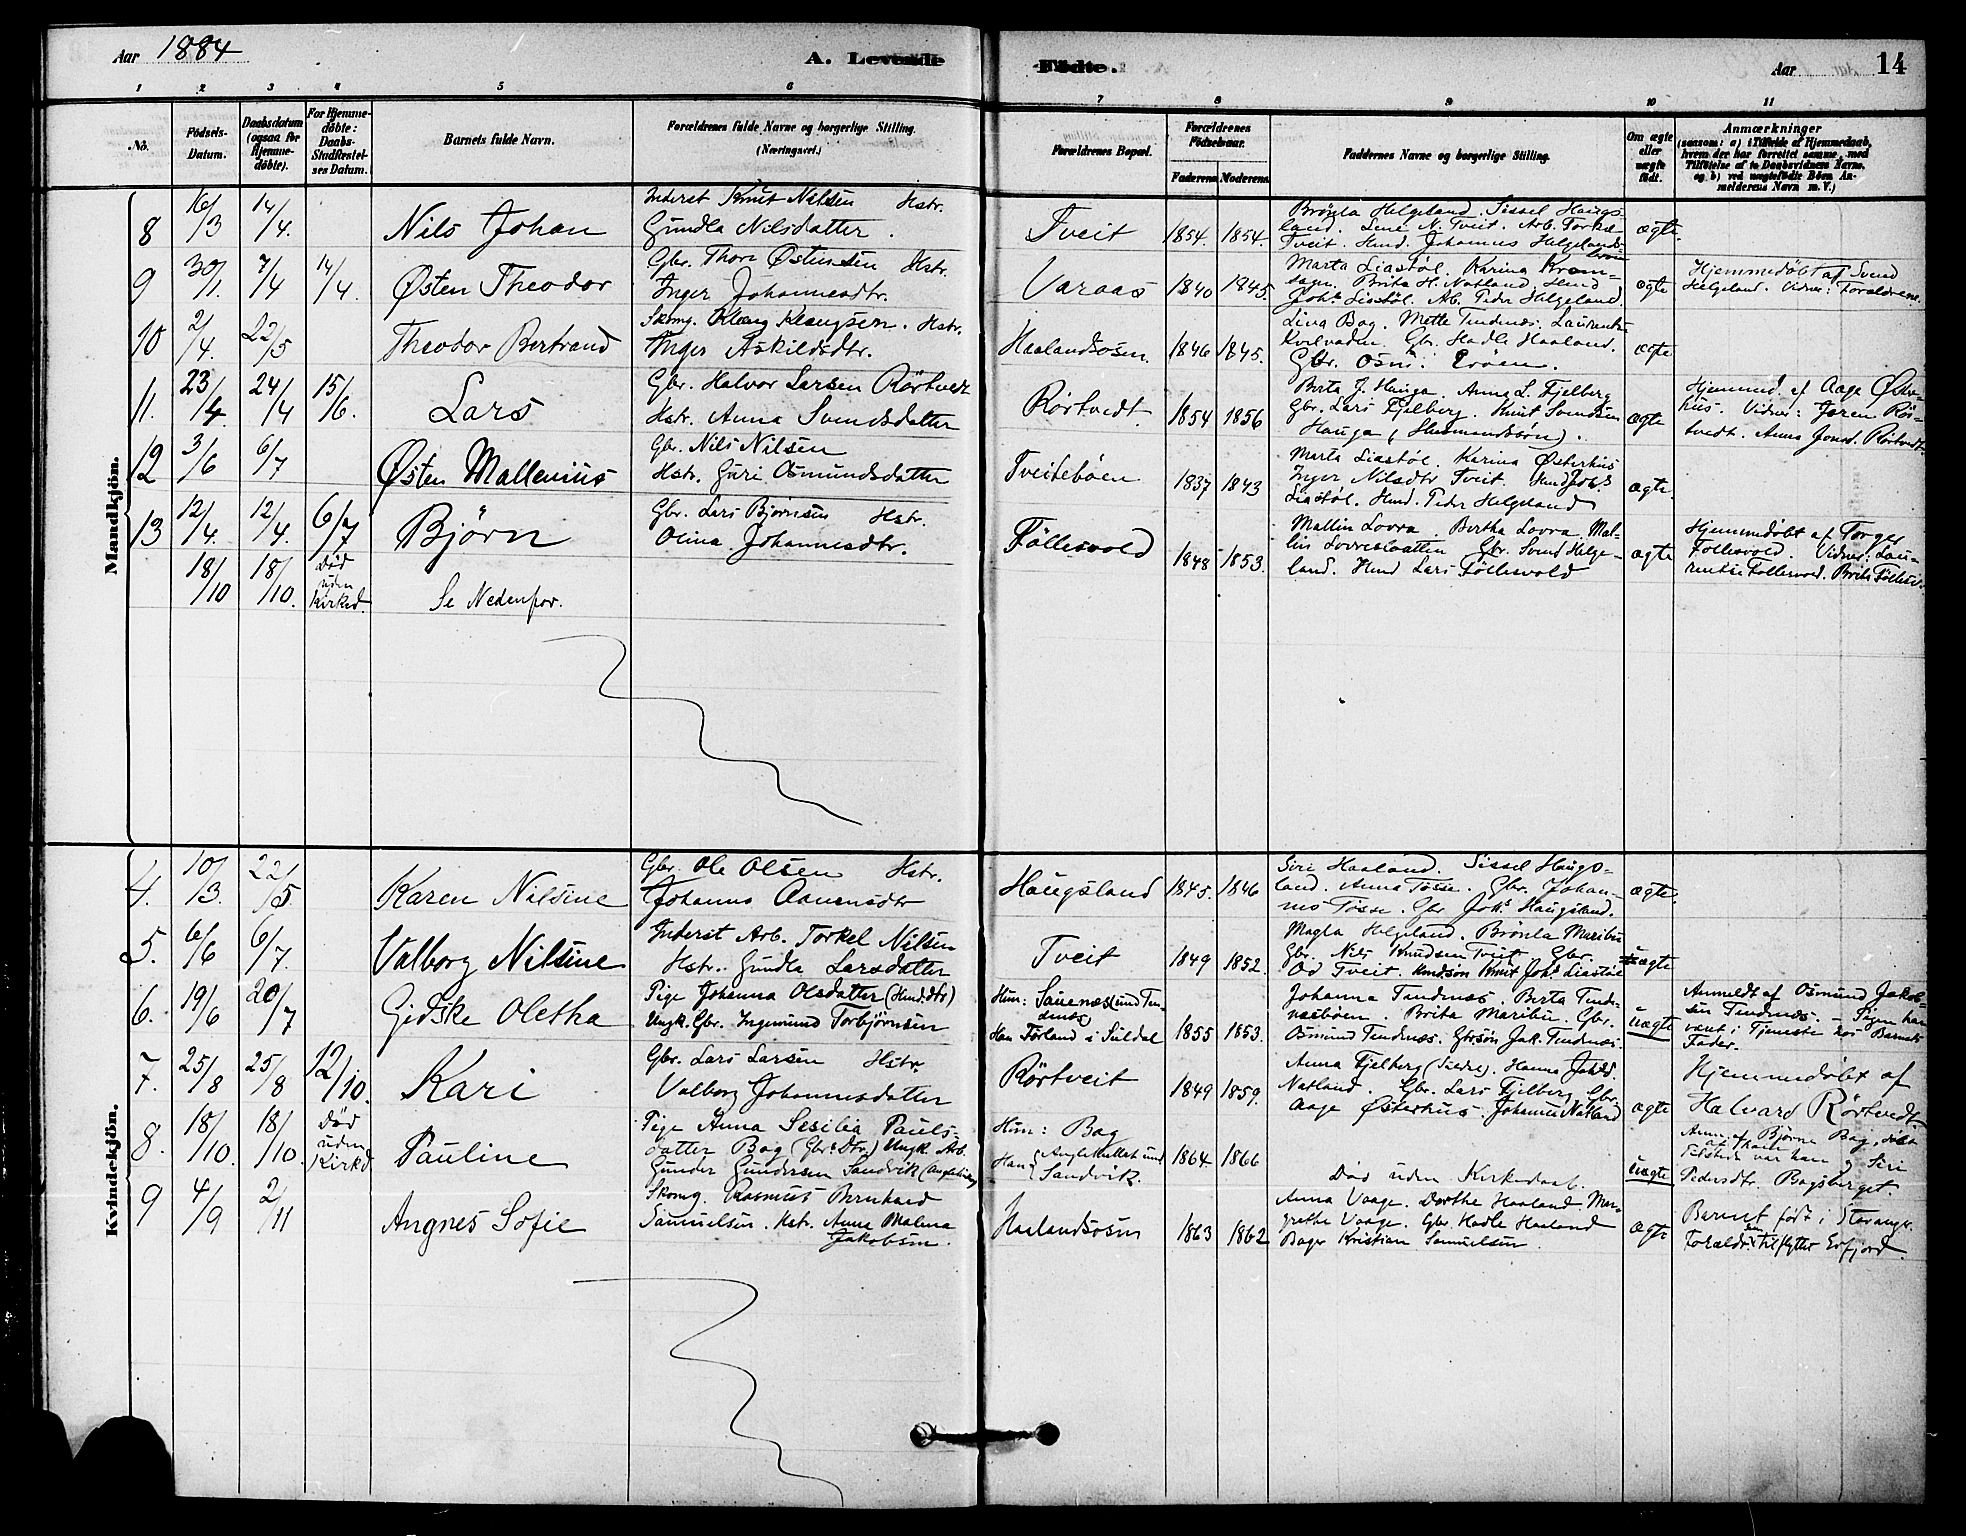 Aar 1884
A. Levende
Fødte.
Aar
14
1 2 3 4 5 6 7 8 9 10 11
No.
Fødsels-Datum.
Daabsdatum (ogsaa for Hjemmedøbte).
For Hjemmedøbte: Daabs-Stadfæstelses Datum.
Barnets fulde Navn.
Forældrenes fulde Navne og borgerlige Stilling. (Næringsvei.)
Forældrenes Bopæl.
Forældrenes Fødselsaar.
Faderens Moderens
Faddernes Navne og borgerlige Stilling.
Om ægte eller uægte født.
Anmærkninger (saasom: a) i Tilfælde af Hjemmedaab, hvem der har forrettet samme, med Tilføielse af to Daabsvidners Navne, og b) ved uægtefødte Børn Anmelderens Navn m. V.)
Mandkjøn.
8 16/3 14/4. Nils Johan
Inderst Knut Nilsen Hstr.
Gundla Nilsdatter.
Tveit 1854. 1854.
Brønla Helgeland. Sissel Haugs-
land. Lene N. Tveit. Arb. Torkel
Tveit. Hmd. Johannes Helgelands-
ægte.
9 30/1. 7/4 14/4. Østen Theodor
Gbr. Thore Østensen Hstr.
Inger Johannesdtr.
Varaas 1840 1845.
Marta Liastøl. Karina
Brita H. Natland. Hmd
Johs Liastøl. Ab. Peder Helgeland.
ægte
Hjemmedøbt af Svend
Helgeland. Vidner: Forældrene.
10 2/4. 22/5 Theodor Bertrand
Skomg. Klaug Klaugsen. Hstr.
Inger Askildsdtr.
Haalandsosen. 1846 1845.
Lina Bag. Mette Tendenæs. Laurentse
Kvilvaden. Gbr. Hadle Haaland.
Gbr. Osm. Erøen.
ægte
11. 23/4 24/4 15/6. Lars
Gbr. Halvor Larsen Rörtveit
Hstr. Anna Svendsdatter
Rörtvedt. 1854 1856
Berta J. Hauga. Anna L. Fjelberg
Gbr. Lars Fjelberg. Knut Svendsen
Hauga (Husmandssøn).
ægte
Hjemmed. af Aage Øster-
hus. Vidner: Jøren Rör-
tvedt. Anna Jonsd. Rörtvedt.
12 3/6 6/7 Østen Mallenius
Gbr. Nils Nilsen
Hstr. Guri Osmundsdatter
Tveitebøen 1837 1843
Marta Liastøl. Karina Østerhus
Inger Nilsdtr Tveit Hmd Johs
Liastøl. Hmd. Peder Helgeland
ægte.
13 12/4. 12/4. 6/7 Bjørn
Gbr. Lars Bjørnsen Hstr.
Olina Johannesdtr.
Føllesvold 1848 1853.
Mallin Lovra Bertha Lovra Mal-
lin Lovreslaatten Gbr. Svend Helge-
land. Hmd Lars Føllesvold
ægte
Hjemmedøbt af Torger
Føllesvold. Vidner: Lau-
rentse Føllesvold. Brita Føllesv.
18/10 18/10. Død uden Kirked. Se Nedenfor.
Kvindekjøn.
4. 10/3. 22/5 Karen Nilsine
Gbr. Ole Olsen Hstr.
Johanna Aanensdtr
Haugsland 1845. 1846
Siri Haaland. Sissel Haugs-
land. Anna Tøsse. Gbr. Johan-
nes Tøsse. Gbr Johs Haugsland.
ægte.
5. 6/6 6/7. Valborg Nilsine
Inderst Arb. Torkel Nilsen
Hstr. Gundla Larsdatter
Tveit 1849 1852.
Magla Helgeland. Brønla Maribu
Gbr. Nils Knudsen Tveit Gbr.
Od Tveit. Hmdsøn Knut Johs Liastøl
ægte
6. 19/6 20/7 Gidske Oletha
Pige Johanna Olsdatter (Hmd. dtr)
Ungk. Gbr. Ingemund Torbjørnsen
Hun: Sauenæs (und Ten-
denæs)
Han Førland i Suldal 1855 1853.
Johanna Tendenæs. Berta Tende-
næsbøen. Brita Maribu. Gbr.
Osmund Tendenæs. Gbrsøn Jak. Tendenæs.
uægte
Anmeldt af Osmund Jakob-
sen Tendenæs. Pigen har
vært i Tjeneste hos Barnets
Fader.
7. 25/8 25/8 12/10. Kari
Gbr. Lars Larsen Hstr.
Valborg Johannesdatter
Rörtveit 1849 1859.
Anna Fjelberg (Suldre). Hanna Johsd.
Natland. Gbr. Lars Fjelberg. Gbr.
Aage Østerhus. Johannes Natland
ægte
Hjemmedøbt af
Halvard Rörtvedt
8. 18/10. 18/10. Død uden Kirked Pauline
Pige Anna Sesilia Pauls-
datter Bag (Gbrs Dtr) Ungk. Arb.
Gunder Gundersen Sandvik
Hun: Bag
Han Sandvik. 1864 1866
Død uden Kirkedaab.
uægte
Anm. af Bjørne Bag,
Tilstede var han og Siri
Pedersdtr. Bagsberget.
9 4/9 2/11 Angnes Sofie
Skomg. Rasmus Bernhard
Samuelsen. Hstr. Anna Malena
Jakobsen.
Haalandsosen 1863 1862
Anna Vaage. Dorthe Haaland Mar-
grethe Vaage. Gbr. Hadle Haaland
Bager Kristian Samuelsen.
ægte
Barnet født i Stavanger.
Forældrene tilflyttet Erfjord.